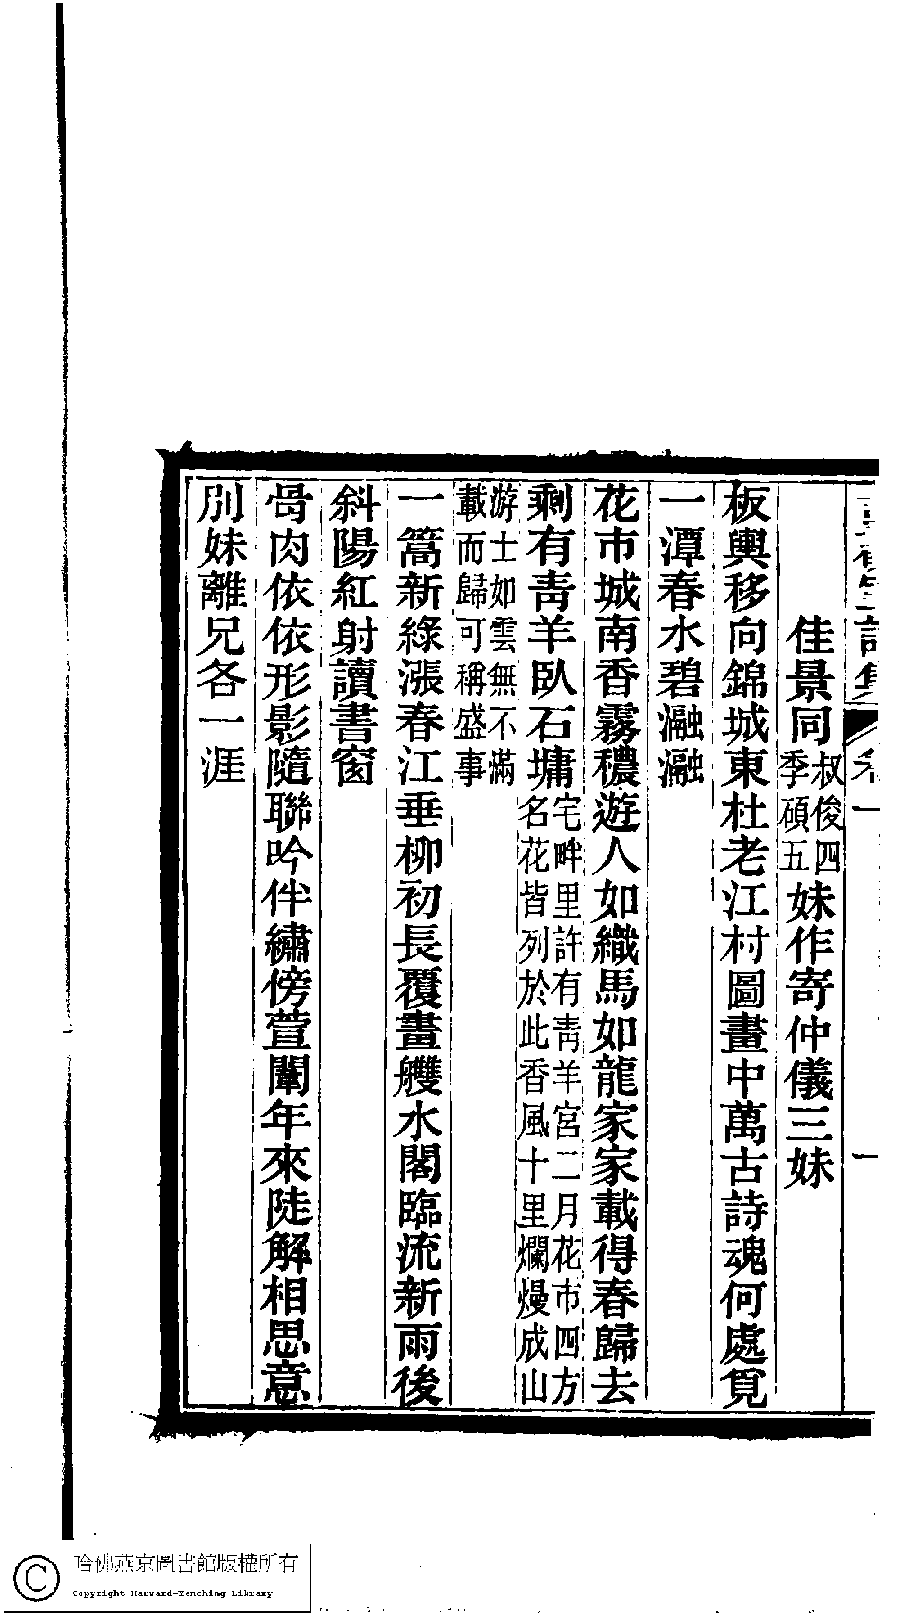 佳景同叔俊四季碩五妹作寄仲儀三妹
板輿移向錦城東杜老江村圖畫中萬古詩魂何處覓
一潭春水碧瀜瀜
花市城南香霧穠遊人如織馬如龍家家載得春歸去
剩有青羊臥石墉宅畔里許有青羊宮二月花市四方名花皆列於此香風十里爛熳成山
游士如雲無不滿載而歸可稱盛事
一篙新綠漲春江垂柳初長覆畫艭水閣臨流新雨後
斜陽紅射讀書窗
骨肉依依形影隨聯吟伴繡傍萱闈年來陡解相思意
別妹離兄各一涯
哈佛燕京圖書館版權所有
Copyright Harvard-Yenching Library